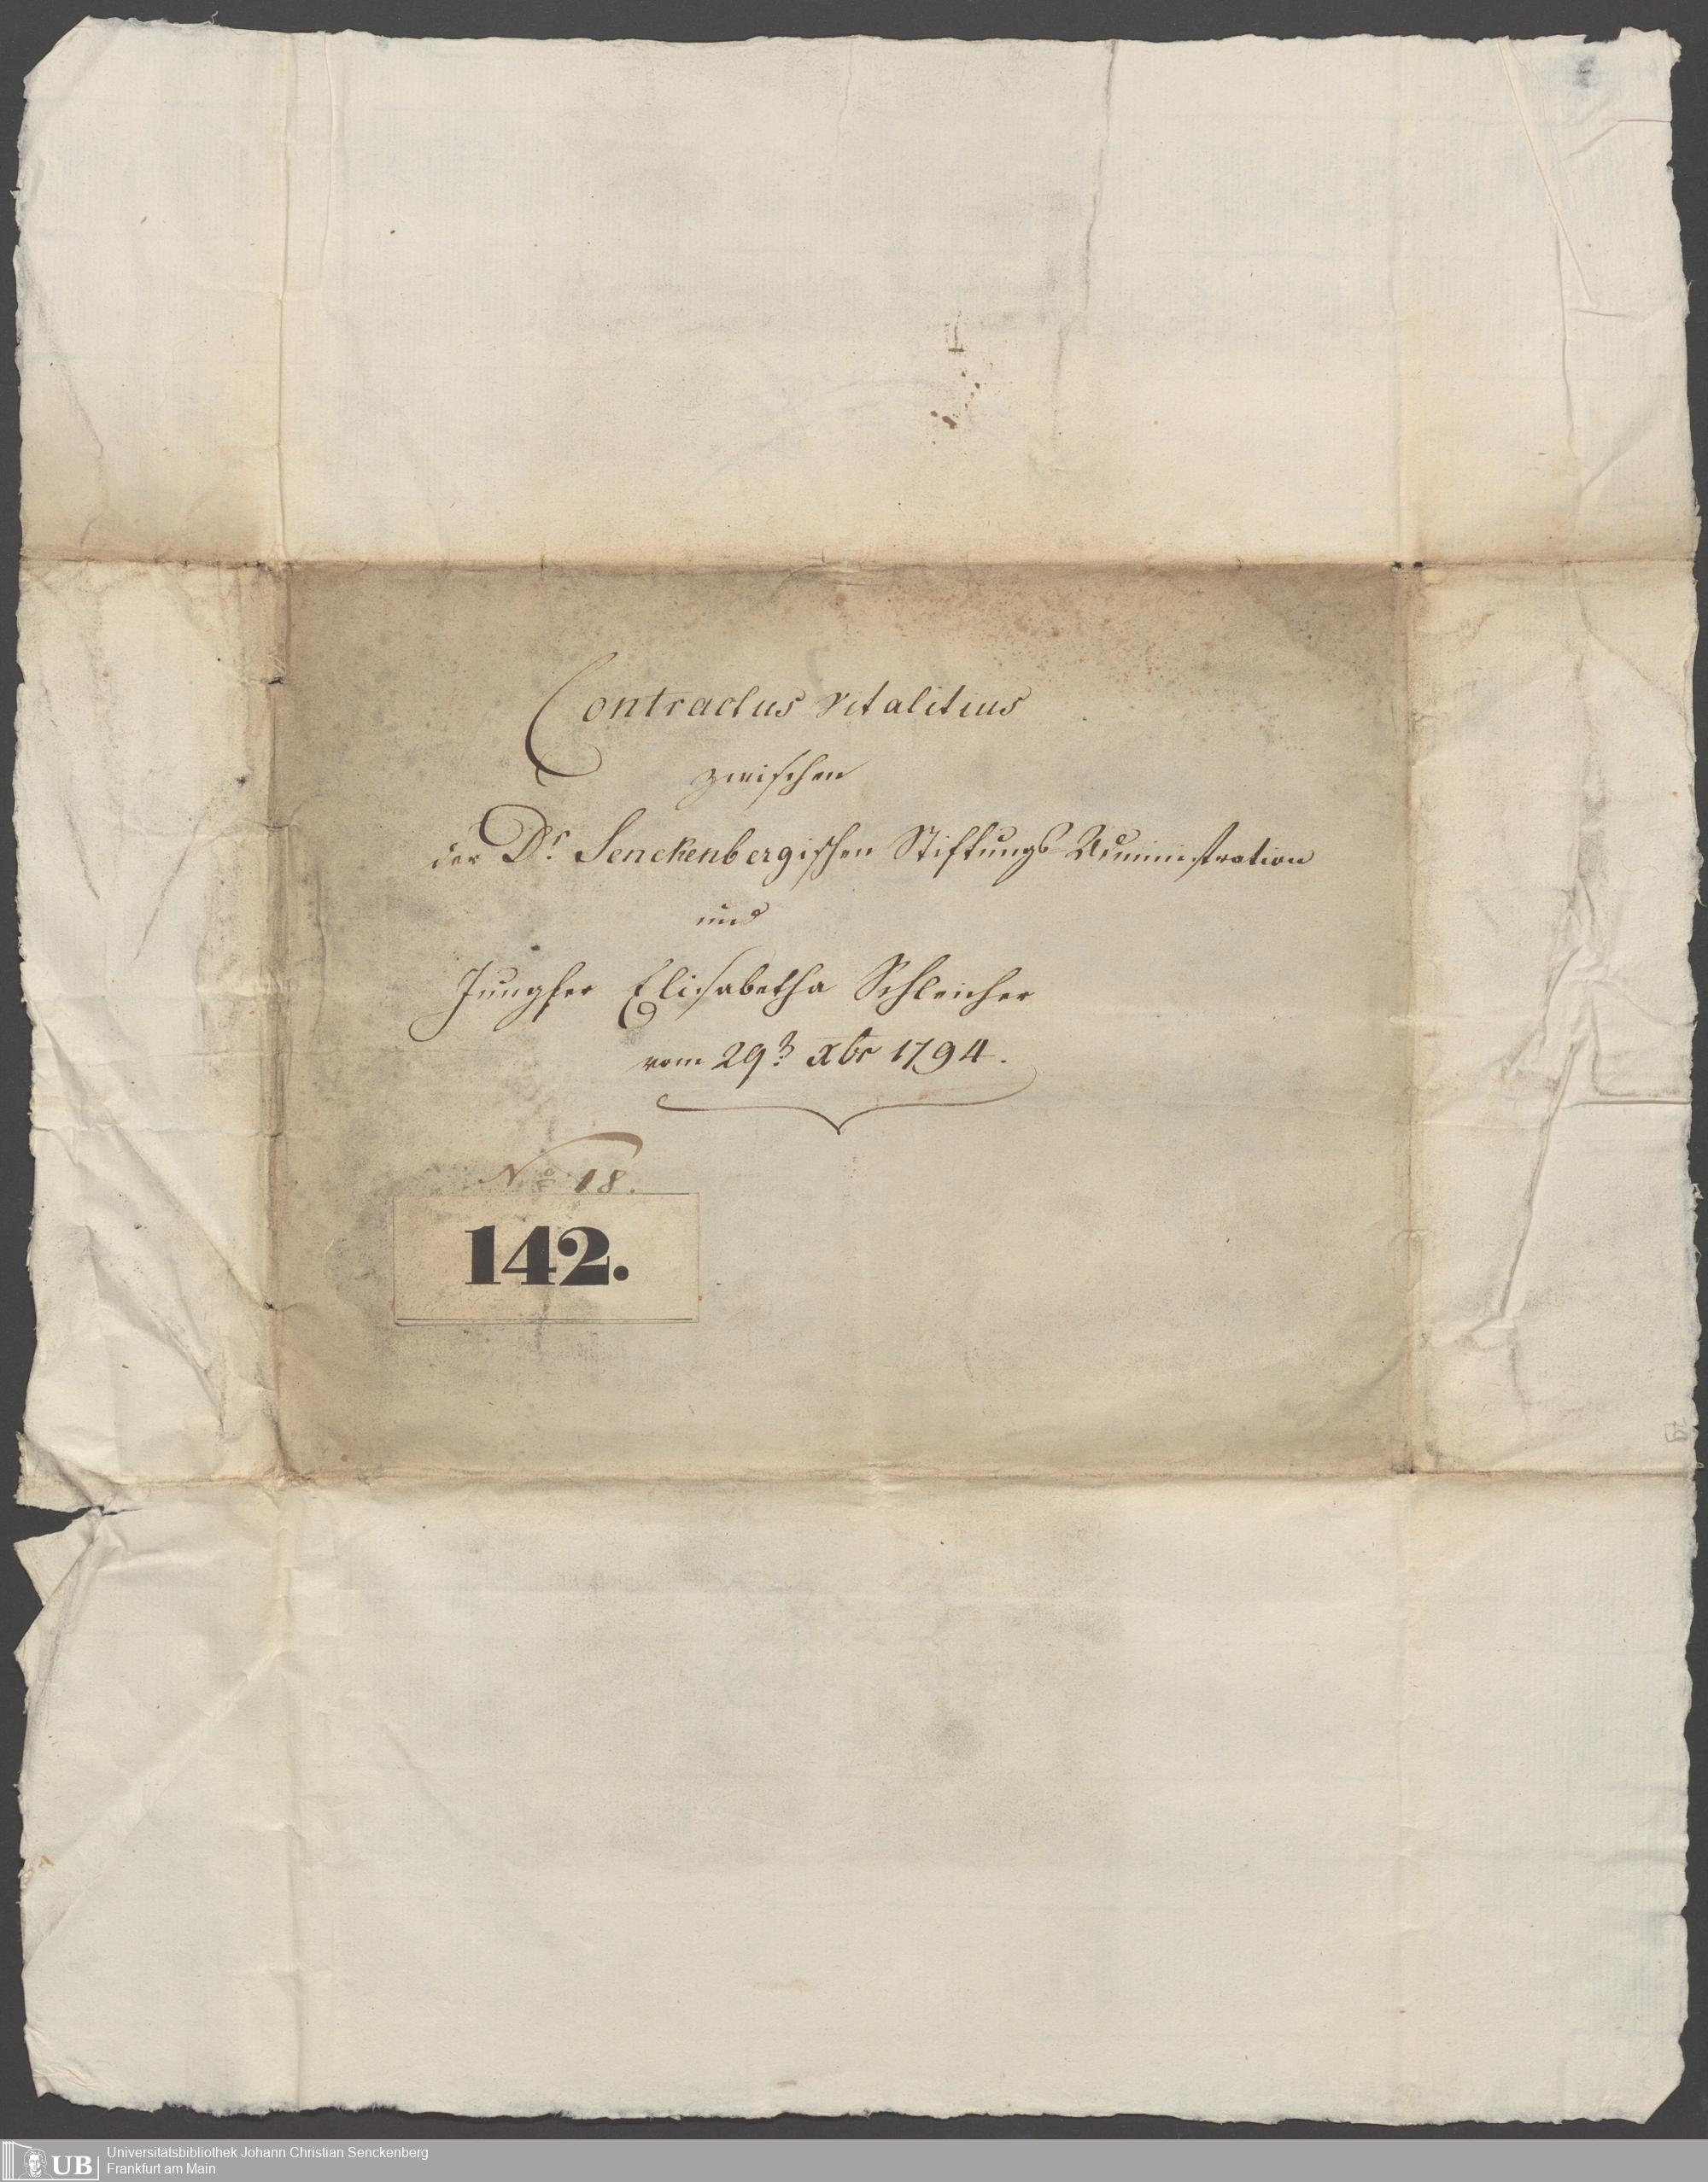 Contractus vitalitius
zwischen
der Dr. Senckenbergischen Stiftungs-Administration
und
Jungfer Elisabetha Schleicher
vom 29t. Xbr 1794.
No 18.
142.
UB
Universitätsbibliothek Johann Christian Senckenberg
Frankfurt am Main